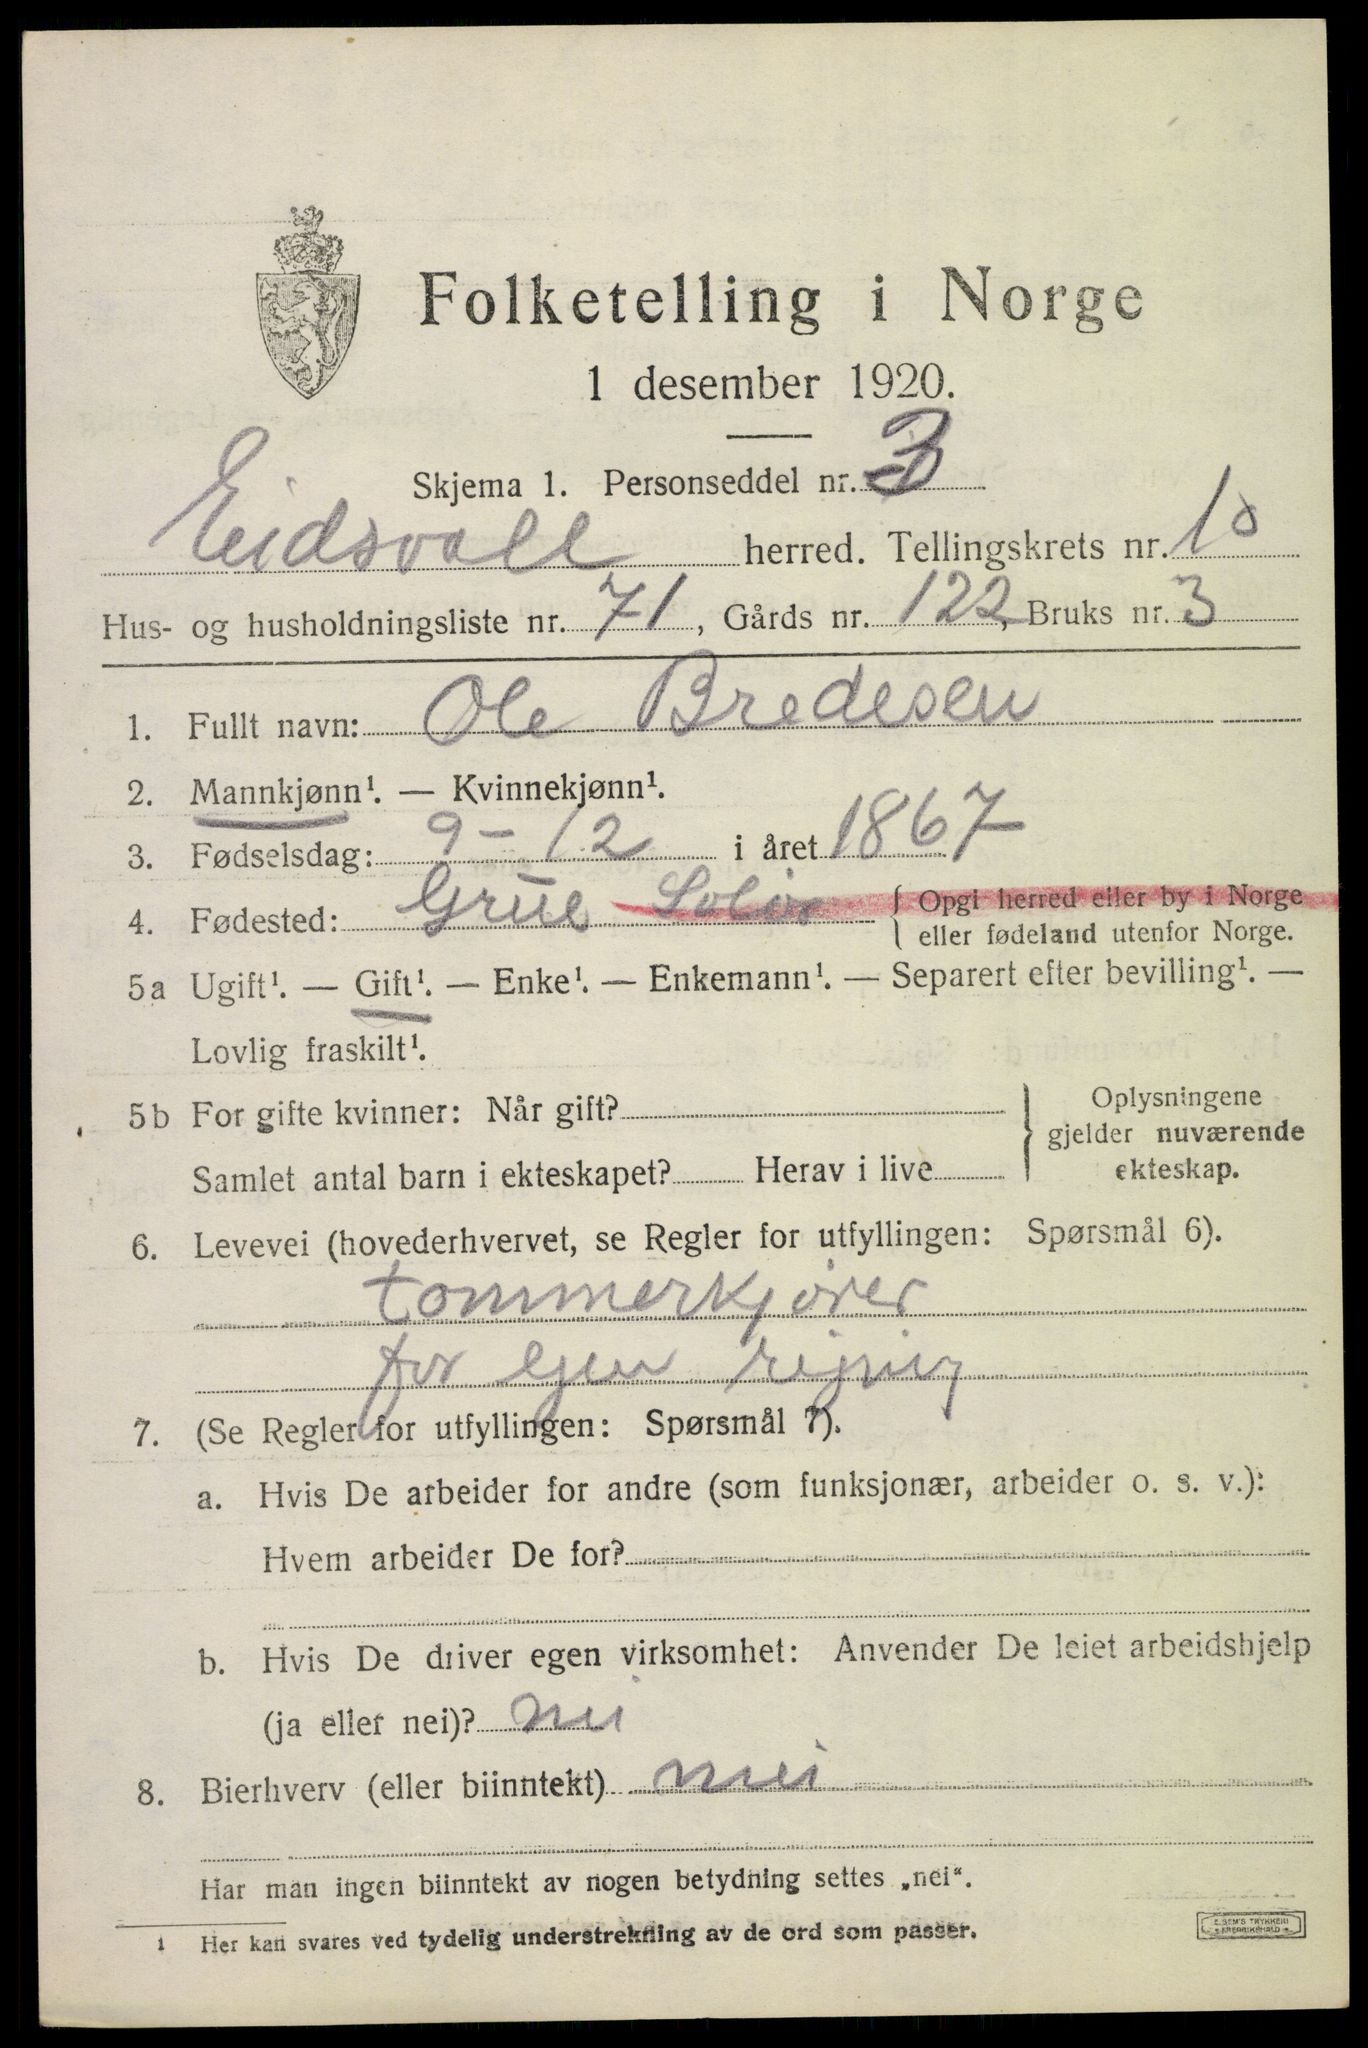 Folketelling i Norge
1 desember 1920.
Skjema 1. Personseddel nr. 3
Eidsvoll herred. Tellingskrets nr. 10
Hus- og husholdningsliste nr. 71, Gårds nr. 122, Bruks nr. 3
1. Fullt navn: Ole Bredesen
2. Mannkjønn¹. — Kvinnekjønn¹.
3. Fødselsdag: 9-12 i året 1867
4. Fødested: Grue Solør { Opgi herred eller by i Norge
eller fødeland utenfor Norge.
5a Ugift¹. — Gift¹. — Enke¹. — Enkemann¹. — Separert efter bevilling¹. —
Lovlig fraskilt¹.
5b For gifte kvinner: Når gift?
Samlet antal barn i ekteskapet? Herav i live
} Oplysningene
gjelder nuværende
ekteskap.
6. Levevei (hovederhvervet, se Regler for utfyllingen: Spørsmål 6).
tømmerkjører
for egen rejning
7. (Se Regler for utfyllingen: Spørsmål 7).
a. Hvis De arbeider for andre (som funksjonær, arbeider o. s. v.):
Hvem arbeider De for?
b. Hvis De driver egen virksomhet: Anvender De leiet arbeidshjelp
(ja eller nei)? nei
8. Bierhverv (eller biinntekt) nei
Har man ingen biinntekt av nogen betydning settes „nei“.
1 Her kan svares ved tydelig understrekning av de ord som passer.
E. SEM'S TRYKKERI
FREDRIKSHALD